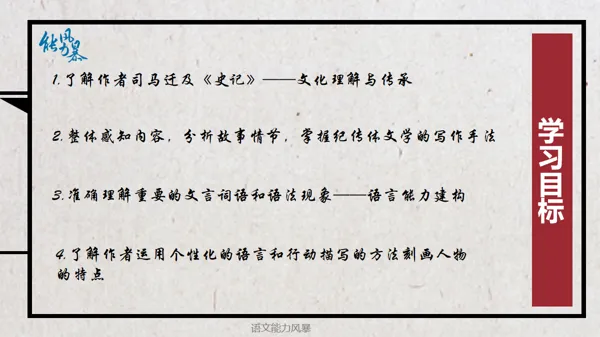 能力风暴
1.了解作者司马迁及《史记》——文化理解与传承
2.整体感知内容，分析故事情节，掌握纪传体文学的写作手法
3.准确理解重要的文言词语和语法现象——语言能力建构
4.了解作者运用个性化的语言和行动描写的方法刻画人物
的特点
学习目标
语文能力风暴